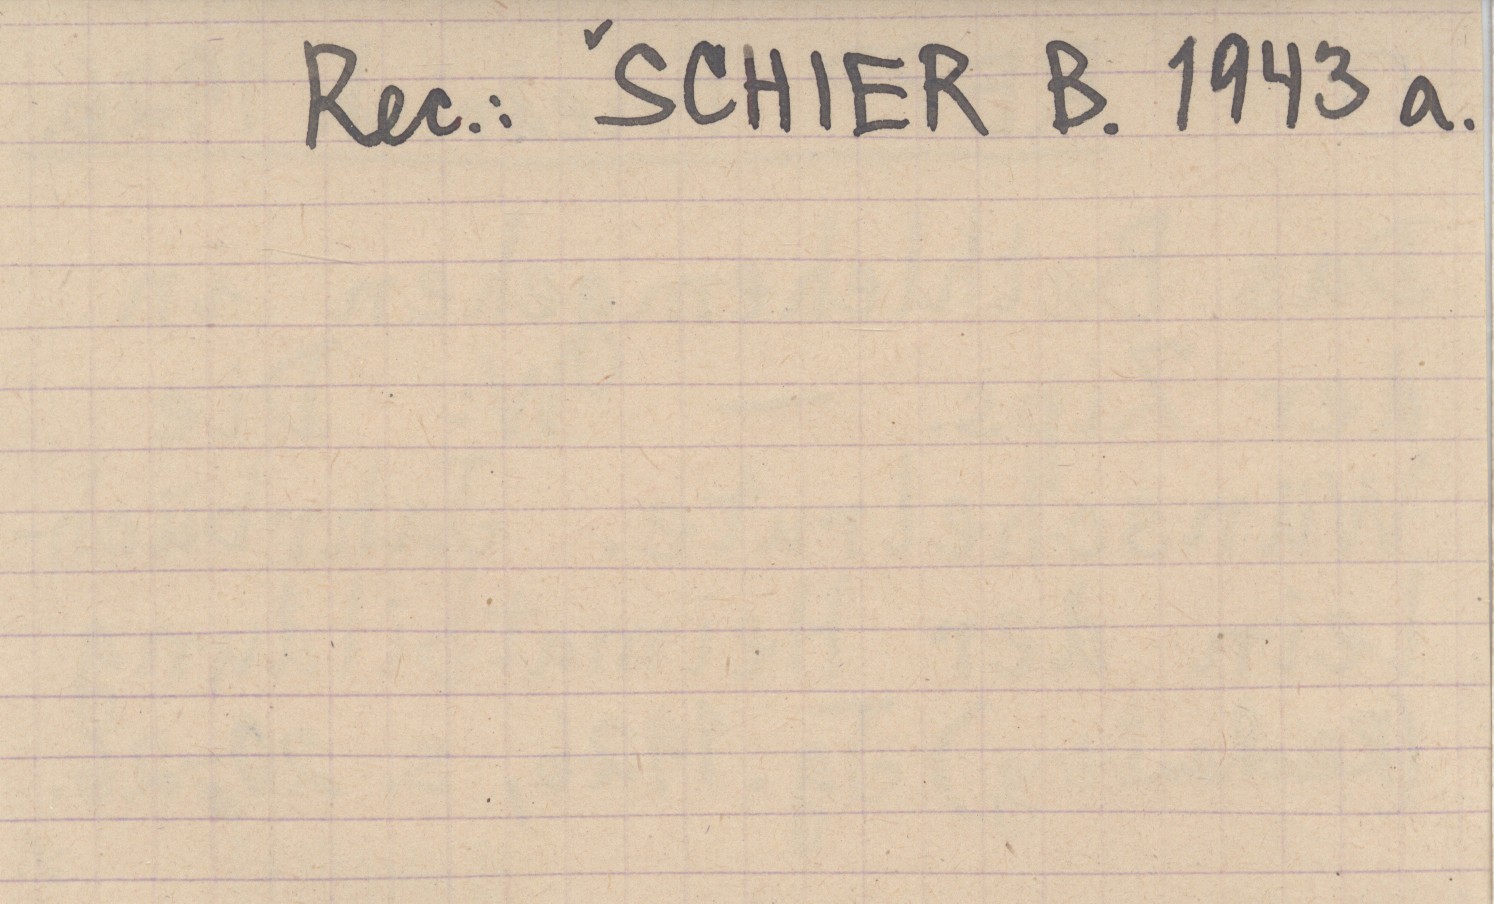 Rec.: SCHIER B. 1943 a.